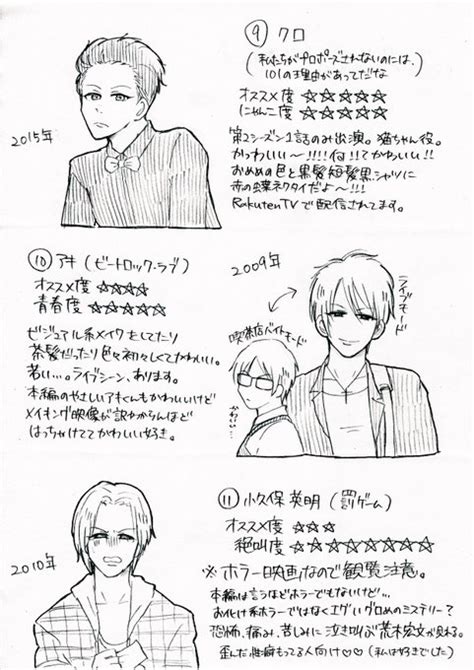 ⑨ クロ
(私たちがプロポーズされないのには、
101の理由があってだな)
オススメ度 ☆☆☆☆☆
にゃんこ度 ☆☆☆☆☆
2015年
第2シーズン1話のみ出演。猫ちゃん役。
かっわいい〜!!!!何!!てかわいい!!
おめめの色と黒髪短髪黒シャツに
赤の蝶ネクタイだよ〜!!!
RakutenTVで配信されてます。
⑩ アキ (ビートロック・ラブ)
オススメ度 ☆☆☆☆
青春度 ☆☆☆☆☆
2009年
ライブモード
喫茶店バイトモード
かわいい…
ビジュアル系メイクをしてたり
茶髪だったり色々初々しくてかわいい。
若い…。ライブシーン、あります。
本編のやさしいアキくんもかわいいけど
メイキング映像が訳わからんほど
はっちゃけててかわいい好き。
⑪ 小久保 英明 (罰ゲーム)
オススメ度 ☆☆☆
絶叫度 ☆☆☆☆☆☆☆☆
2010年
※ホラー映画なので観覧注意。
本編は言うほどホラーでもないけど…
お化け系ホラーではなくエグいグロめのミステリー?
恐怖、痛み、苦しみに泣き叫ぶ荒木宏文が見れる。
歪んだ性癖もってる人向け♡♡(私は好きでした)